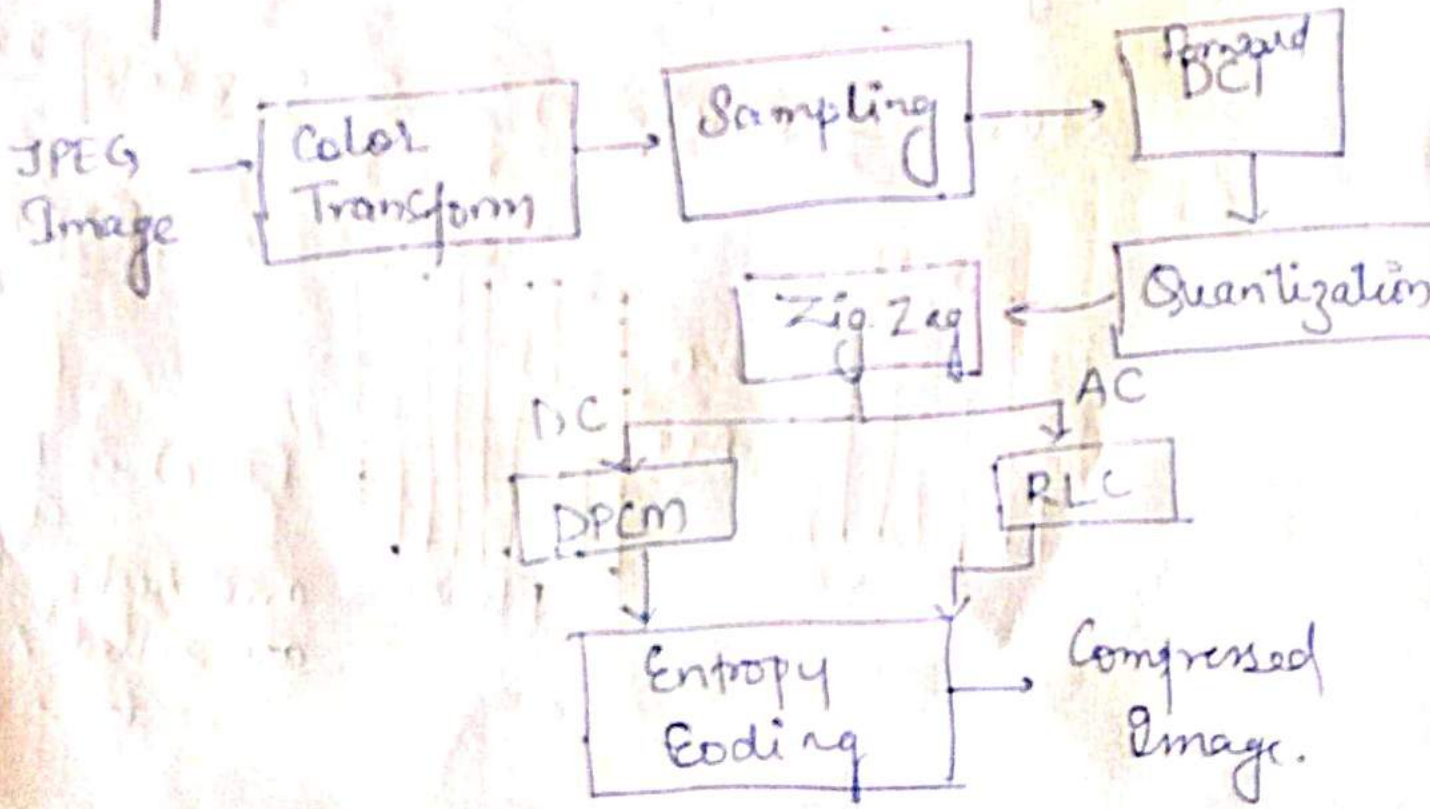 JPEG
Image
Color
Transform
Sampling
Forward
DCT
Quantization
Zig Zag
DC
AC
DPCM
RLC
Entropy
Eoding
Compressed
Image.